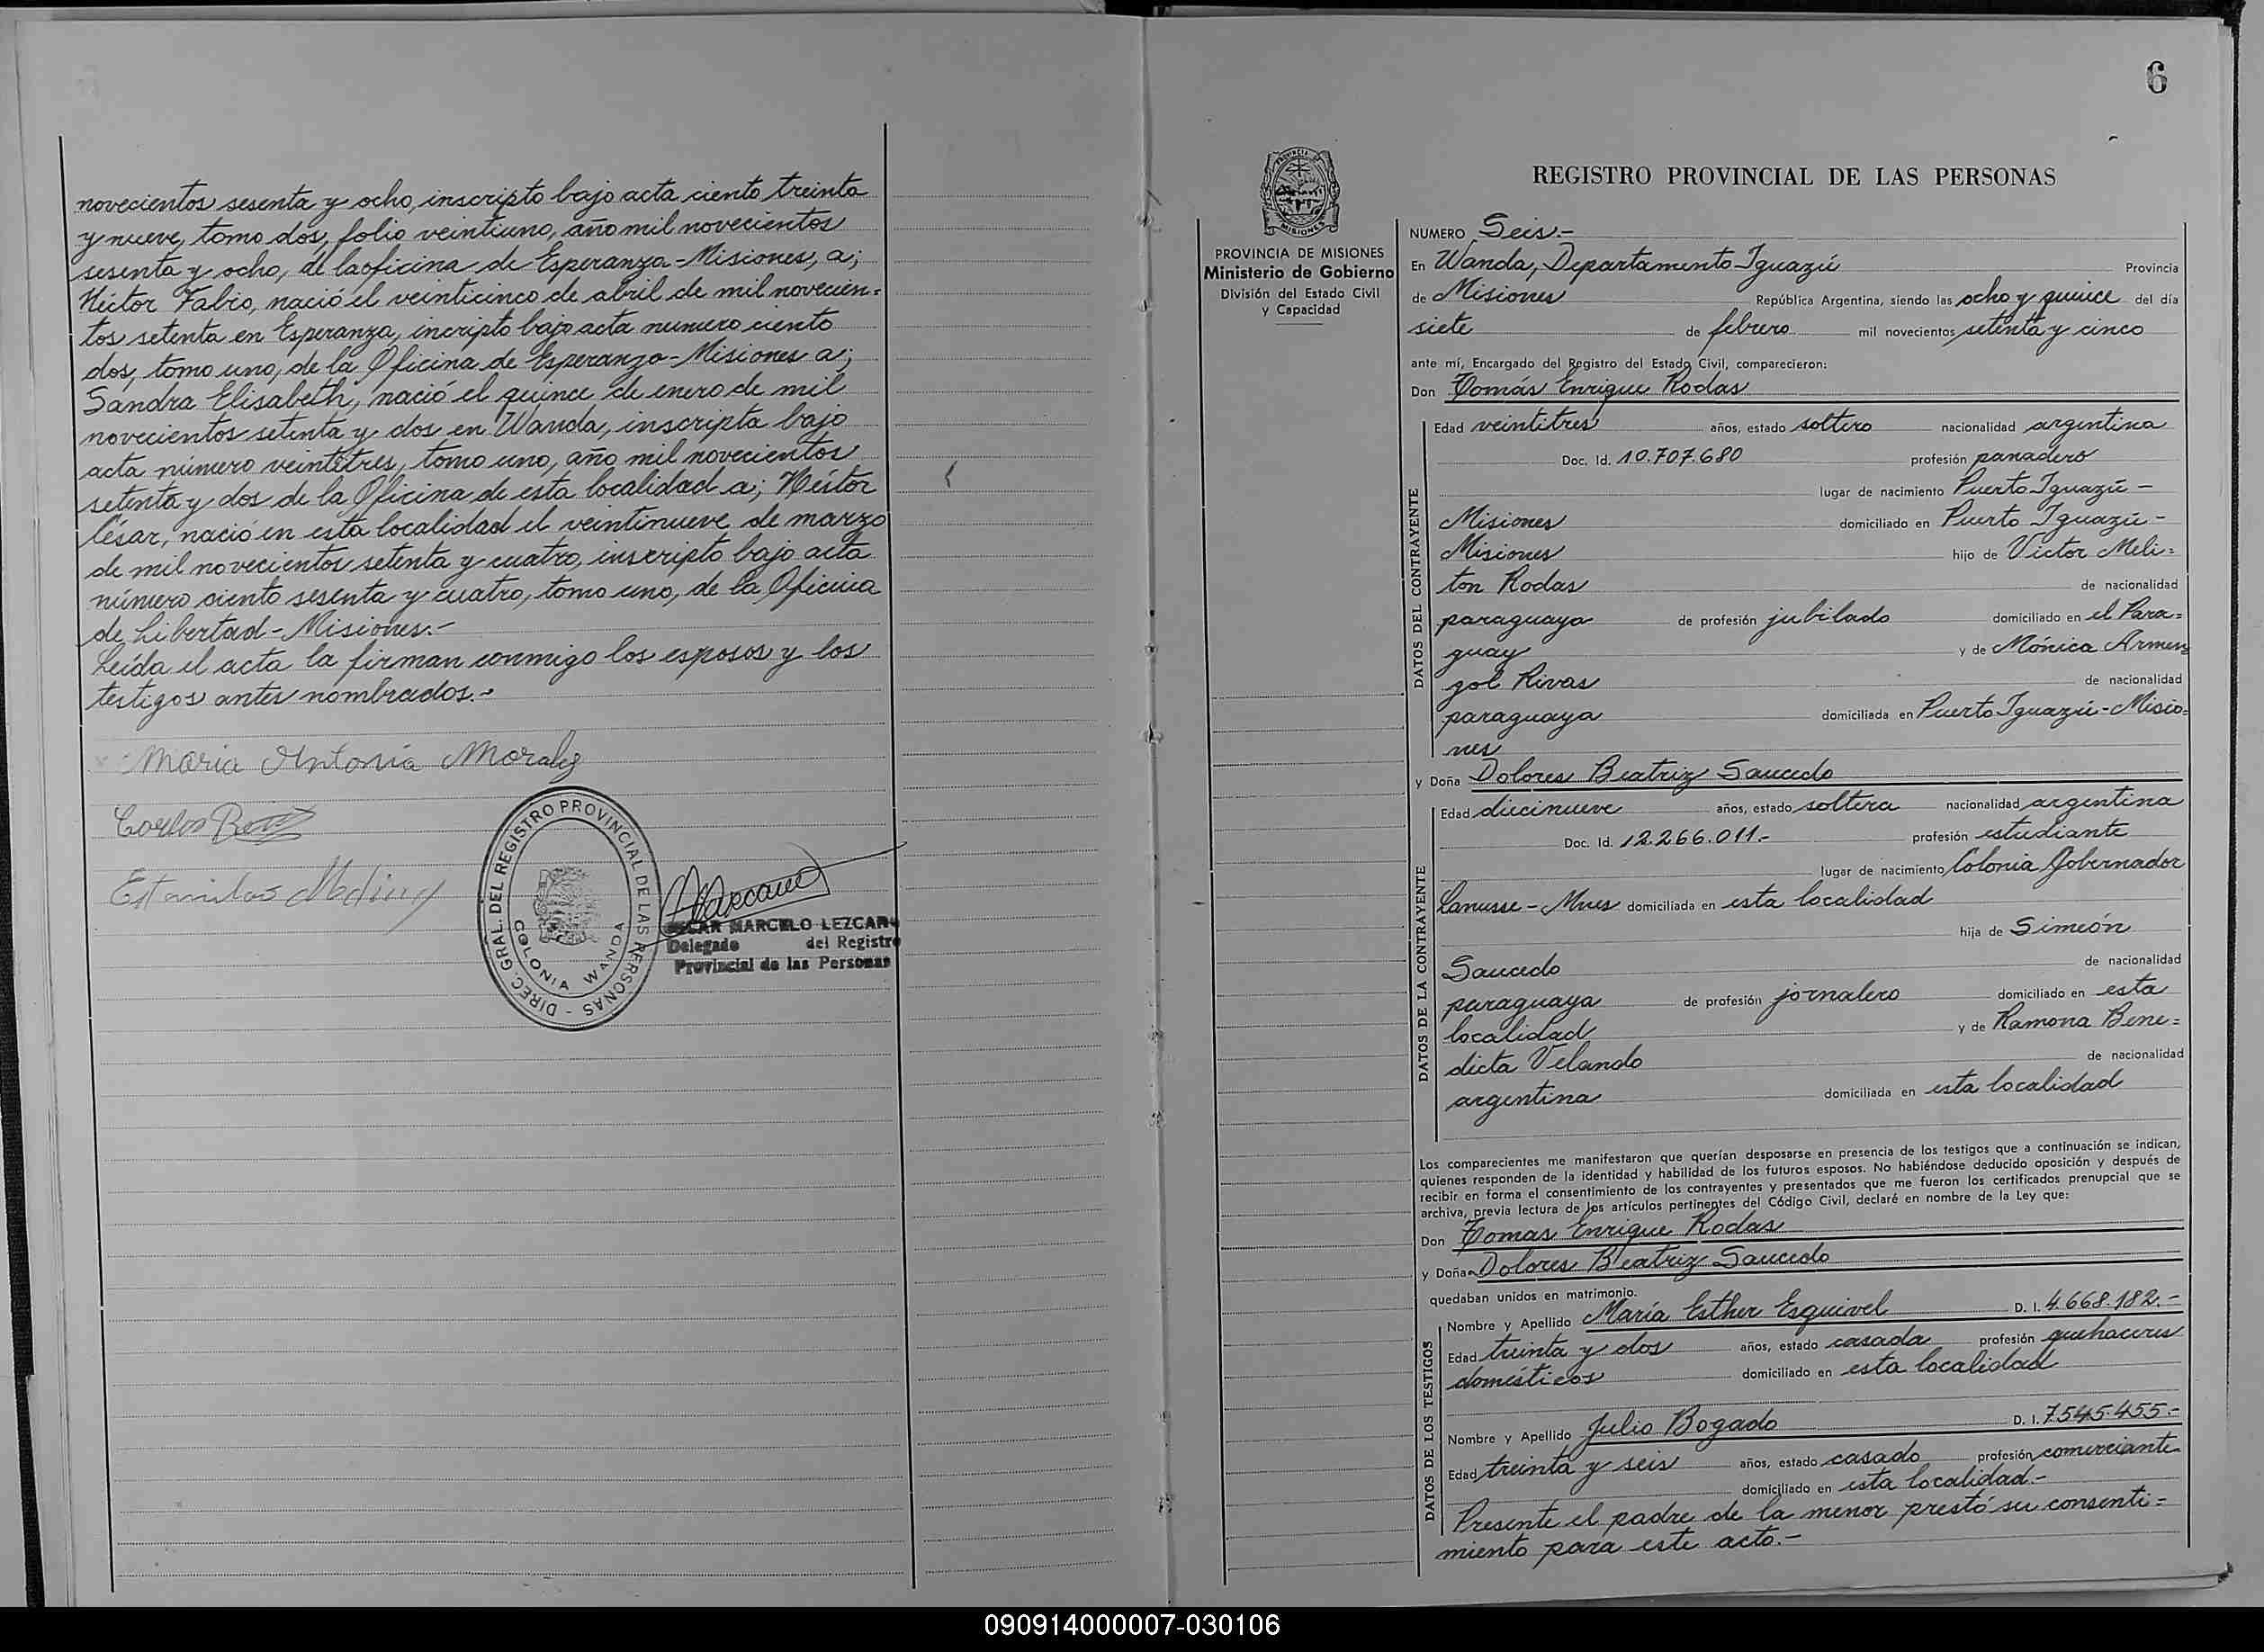 novecientos sesenta y ocho, inscripto bajo acta ciento treinta
y nueve, tomo dos, folio veintiuno, año mil novecientos
sesenta y ocho, de laoficina de Esperanza-Misiones, a;
Héctor Fabio, nació el veinticinco de abril de mil novecien=
tos setenta en Esperanza, incripto bajo acta numero ciento
dos, tomo uno, de la Oficina de Esperanza-Misiones a;
Sandra Elisabeth, nació el quince de enero de mil
novecientos setenta y dos en Wanda, inscripta bajo
acta número veintitres, tomo uno, año mil novecientos
setenta y dos de la Oficina de esta localidad a; Néstor
César, nació en esta localidad el veintinueve de marzo
de mil novecientos setenta y cuatro, inscripto bajo acta
número ciento sesenta y cuatro, tomo uno, de la Oficina
de Libertad-Misiones.-
Leída el acta la firman conmigo los esposos y los
testigos antes nombrados.-
Maria Antonia Morales
Carlos
Estanislao Medina
DIREC. GRAL. DEL REGISTRO PROVINCIAL DE LAS PERSONAS -
COLONIA WANDA
OSCAR MARCELO LEZCANO
Delegado del Registro
Provincial de las Personas
6
PROVINCIA DE
MISIONES
PROVINCIA DE MISIONES
Ministerio de Gobierno
División del Estado Civil
y Capacidad
REGISTRO PROVINCIAL DE LAS PERSONAS
NUMERO Seis.-
En Wanda, Departamento Iguazú Provincia
de Misiones República Argentina, siendo las ocho y quince del día
siete de febrero mil novecientos setenta y cinco
ante mí, Encargado del Registro del Estado Civil, comparecieron:
Don Tomás Enrique Rodas
DATOS DEL CONTRAYENTE
Edad veintitres años, estado soltero nacionalidad argentina
Doc. Id. 10.707.680 profesión panadero
lugar de nacimiento Puerto Iguazú-
Misiones domiciliado en Puerto Iguazú-
Misiones hijo de Victor Meli=
ton Rodas de nacionalidad
paraguaya de profesión jubilado domiciliado en el Para=
guay y de Mónica Armen=
gol Rivas de nacionalidad
paraguaya domiciliada en Puerto Iguazú-Misio=
nes
y Doña Dolores Beatriz Saucedo
DATOS DE LA CONTRAYENTE
Edad diecinueve años, estado soltera nacionalidad argentina
Doc. Id. 12.266.011.- profesión estudiante
lugar de nacimiento Colonia Gobernador
Lanusse-Mnes domiciliada en esta localidad
hija de Simeón
Saucedo de nacionalidad
paraguaya de profesión jornalero domiciliado en esta
localidad y de Ramona Bene=
dicta Velando de nacionalidad
argentina domiciliada en esta localidad
Los comparecientes me manifestaron que querían desposarse en presencia de los testigos que a continuación se indican,
quienes responden de la identidad y habilidad de los futuros esposos. No habiéndose deducido oposición y después de
recibir en forma el consentimiento de los contrayentes y presentados que me fueron los certificados prenupcial que se
archiva, previa lectura de los artículos pertinentes del Código Civil, declaré en nombre de la Ley que:
Don Tomas Enrique Rodas
y Doña Dolores Beatriz Saucedo
quedaban unidos en matrimonio.
DATOS DE LOS TESTIGOS
Nombre y Apellido María Esther Esquivel D. I. 4.668.182.-
Edad treinta y dos años, estado casada profesión quehaceres
domésticos domiciliado en esta localidad
Nombre y Apellido Julio Bogado D. I. 7.545.455.-
Edad treinta y seis años, estado casado profesión comerciante
domiciliado en esta localidad.-
Presente el padre de la menor prestó su consenti=
miento para este acto.-
090914000007-030106